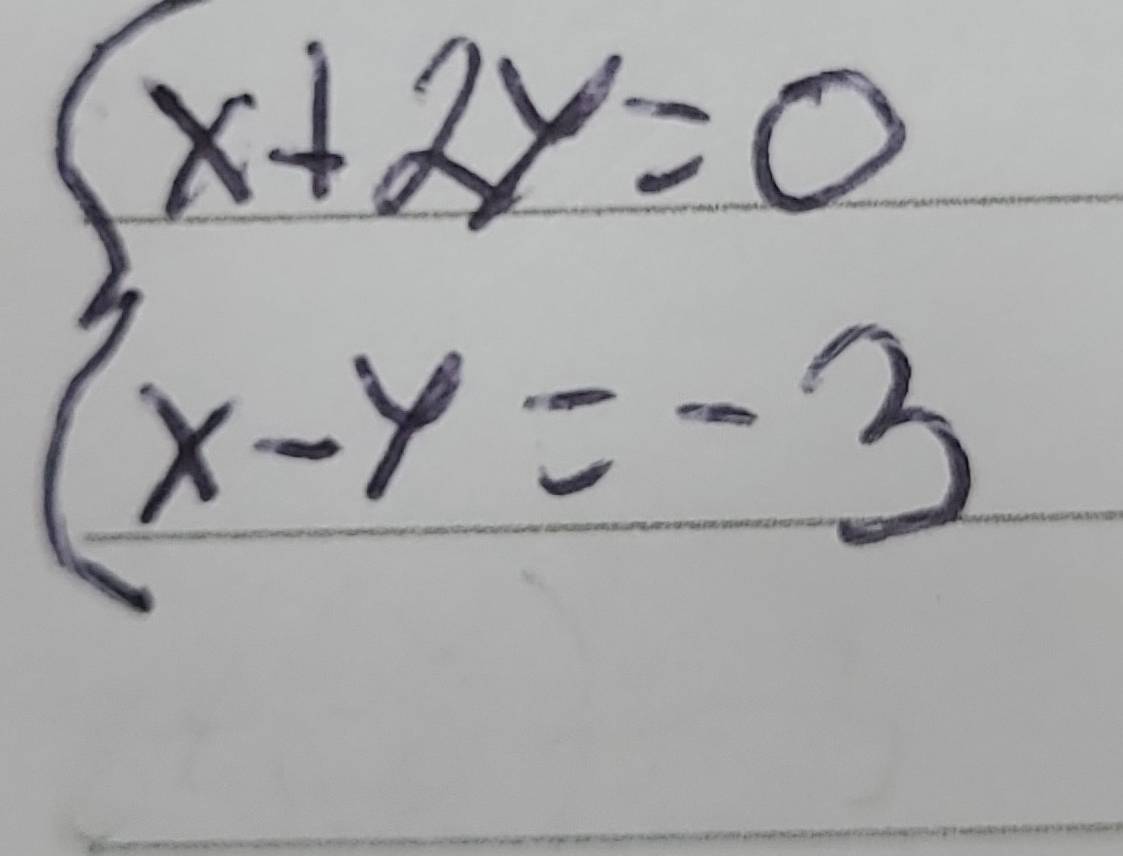 x+2y=0
x-y=-3